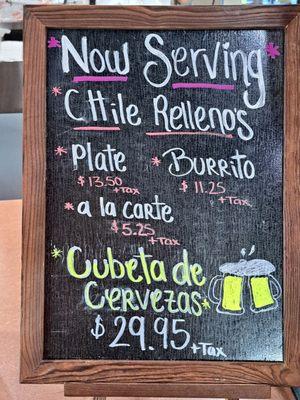 Now Serving
Chile Rellenos
Plate
$13.50
+Tax
Burrito
$11.25
+Tax
a la carte
$5.25
+Tax
Cubeta de
Cervezas
$29.95
+Tax